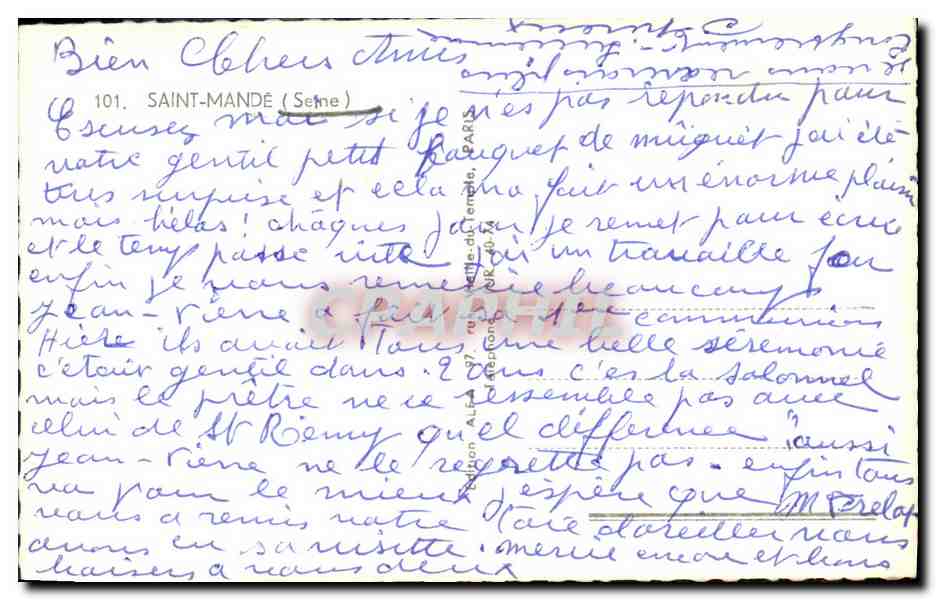 Bien Chers Amis
101. SAINT-MANDÉ (Seine)
Escusez moi si je n'es pas repondu pour
votre gentil petit bouquet de muguet j'ai été
tres surprise et cela ma fait un énorme plaisir
mais hélas! chaques jour je remet pour écrire
et le temp passe vite j'ai un travaille fou
enfin je vous remercie beaucoup
Jean-Pierre a fait sa 1er communion
Hière ils avait Tous une belle sérémonie
c'était gentil dans 2 ans c'es la solonnel
mais le prêtre ne ce ressemble pas avec
celui de St Rémy quel différence aussi
Jean-Pierre ne le regrette pas. enfin tous
va pour le mieux j'espère que M Prelat
vous a remis votre Taie d'oreiller nous
avons eu sa visite. merci encore et bons
baisers a vous deux
Edition ALFA, 97, rue Vieille-du-Temple, PARIS
Téléphone TUR. 40-74
CPARAMA